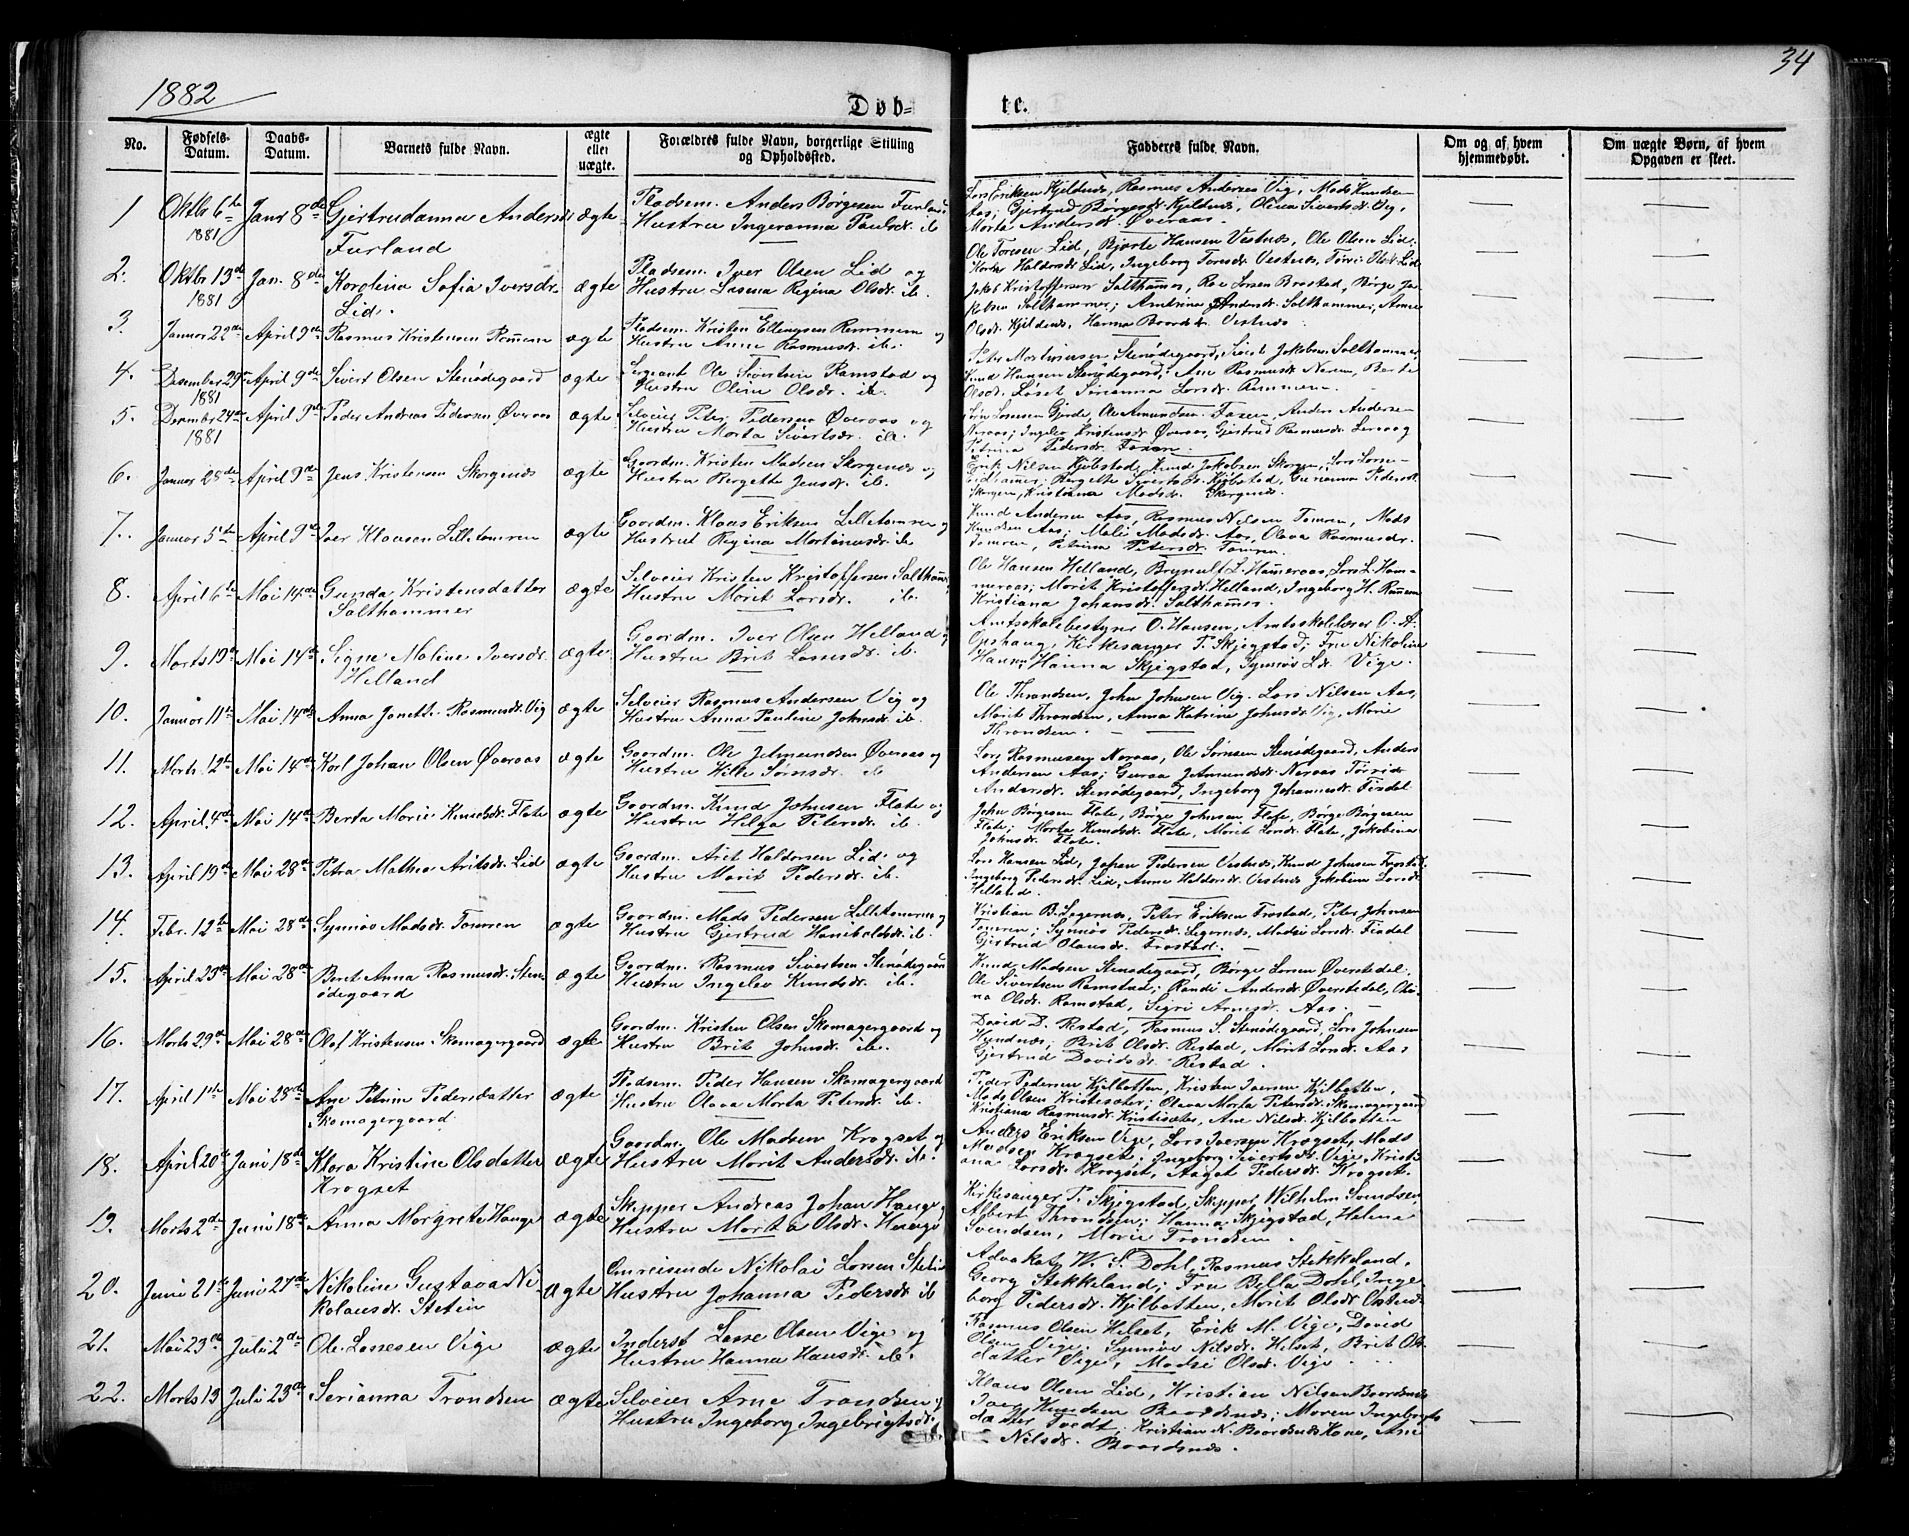 1882
34
Døb-
te.
No.
Fødsels-
Datum.
Daabs-
Datum.
Barnets fulde Navn.
ægte
eller
uægte.
Forældres fulde Navn, borgerlige Stilling
og Opholdssted.
Fadderes fulde Navn.
Om og af hvem
hjemmedøbt.
Om uægte Børn, af hvem
Opgaven er skeet.
1 Oktbr 6te Janr 8de Gjertrudanna Andersdr ægte Pladsm. Anders Børgesen Furland
1881 Furland Hustru Ingeranna Paulsdr. ib.
Lars Eriksen Kjeldnæs, Rasmus Andersen Vig, Mads Knudsen
Aas; Gjertrud Børgesdr. Kjeldnæs, Olina Sivertsdr. Vig,
Marta Andersdr. Øveraas.
2. Oktbr 13de Jan. 8de Karolina Sofia Iversdr. ægte Pladsm. Iver Olsen Lid og
1881 Lid. Hustru Lasina Regina Olsdr. ib.
Ole Toresen Lid, Bjarte Hansen Vestnæs, Ole Olsen Lid,
Marta Haldorsdr. Lid, Ingeborg Toresdr. Vestnæs,
3. Januar 22de April 9de Rasmus Kristensen Remmem ægte Pladsm. Kristen Ellingsen Remmem og
Hustru Anne Rasmusdr. ib.
Jakob Kristoffersen Salthammer, Roe Larsen Brastad, Børge Ja-
kobsen Salthammer; Andrina Andersdr. Salthammer, Anne
Olsdr. Kjeldnæs, Hanna Baardsdr. Vestnæs.
4. Desember 29de April 9de Sivert Olsen Stenødegaard ægte Sergeant Ole Sivertsen Ramstad og
1881 Hustru Oline Olsdr. ib.
Peter Martinusen Stenødegaard, Sivert Jakobsen Salthammer,
Knud Hansen Stenødegaard; Ane Rasmusdr. Neraas, Berte
Olsdr. Løset, Serianna Larsdr. Remmem.
5. Desember 24de April 9de Peder Andreas Pedersen Øveraas ægte Selveier Peter Pedersen Øveraas og
1881 Hustru Marta Sivertsdr. ib.
Gjerde, Ole Amundsen Faxen, Anders Andersen
Neraas; Ingeløv Kristensdr. Øveraas, Gjertrud Rasmusdr. Neraas og
Petrina Pedersdr. Faxen.
6. Januar 28de April 9de Jens Kristensen Skorgenæs ægte Gaardm. Kristen Madsen Skorgenæs og
Hustru Bergette Jensdr. ib.
Erik Nilsen Kjelbstad, Knud Jakobsen Skorgen, Lars Larsen
Bergette Sivertsdr. Kjelbstad, Gurianna Pedersdr.
Skorgen, Kristianna Madsdr. Skorgenæs.
7. Januar 5te April 9de Iver Klausen Lilletomren ægte Gaardm. Klaus Eriksen Lilletomren og
Hustru Regina Martinusdr. ib.
Knud Andersen Aas, Rasmus Nilsen Tomren, Mads
Knudsen Aas, Malei Madsdr. Aas, Olava Rasmusdr.
Tomren, Petrina Petersdr. Tomren.
8. April 6te Mai 14de Gunda Kristensdatter ægte Selveier Kristen Kristoffersen Salthammer
Salthammer Hustru Marit Larsdr. ib.
Ole Hansen Helland, Brynulf L. Hameraas, Lars L. Ham-
meraas; Marit Kristoffersdr. Helland, Ingeborg H. Remmem
Kristiana Johansdr. Salthammer.
9. Marts 19de Mai 14de Signe Maline Iversdr. ægte Gaardm. Iver Olsen Helland og
Helland Hustru Brit Lassesdr. ib.
Amtsskolebestyrer O. Hansen, Amtsskolelærer O. A.
Opshaug, Kirkesanger P. Skjegstad, Fru Nikoline
Hansen, Hanna Skjegstad, Synnøv L.dr. Vige.
10. Januar 11te Mai 14de Anna Janette Rasmusdr. Vig ægte Selveier Rasmus Andersen Vig og
Hustru Anna Pauline Johnsdr. ib.
Ole Throndsen, John Johnsen Vig, Lars Nilsen Aas,
Marit Throndsen, Anna Katrine Johnsdr. Vig, Marie
Throndsen.
11. Marts 12te Mai 14de Karl Johan Olsen Øveraas ægte Gaardm. Ole Jetmundsen Øveraas og
Hustru Sørensdr. ib
Lars Rasmussen Neraas, Ole Sørnsen Stenødegaard, Anders
Andersen Aas; Guroa Jetmundsdr. Neraas, Torrid
Andersdr. Stenødegaard, Ingeborg Johannesdr. Fisdal
12. April 4de Mai 14de Berta Marie Knudsdr. Flate ægte Gaardm. Knud Johnsen Flate og
Hustru Helga Petersdr. ib.
John Børgesen Flate, Børge Johnsen Flate, Børge Børgesen
Flate; Marta Knudsdr. Flate, Marit Larsdr. Flate, Jakobina
Johnsdr. Flate.
13. April 19de Mai 28de Petra Mathea Aritsdr. Lid ægte Gaardm. Arit Haldorsen Lid og
Hustru Marit Pedersdr. ib.
Lars Hansen Lid, Johan Pedersen Vestnæs, Knud Johnsen Frostad,
Ingeborg Pedersdr. Lid, Anne Haldorsdr. Vestnæs Jakobina Larsdr.
Helland.
14. Febr. 12te Mai 28de Synnøv Madsdr. Tomren ægte Gaardm. Mads Pedersen Lilletomren og
Hustru Gjertrud Hanibalsdr. ib.
Kristian B. Legernæs, Peter Eriksen Frostad, Peter Johnsen
Tomren; Synnøv Pedersdr. Legernæs, Madsi Larsdr. Fisdal
Gjertrud Olausdr. Frostad.
15. April 23de Mai 28de Brit Anna Rasmusdr. Sten- ægte Gaardm. Rasmus Sivertsen Stenødegaard
ødegaard Hustru Ingeløv Knudsdr. ib.
Knud Madsen Stenødegaard, Børge Larsen Øverstedal,
Ole Sivertsen Ramstad; Randi Andersdr. Øverstedal, Oli-
na Olsdr. Ramstad, Sigri Arnesdr. Aas.
16. Marts 29de Mai 28de Olaf Kristensen Skomagergaard ægte Gaardm. Kristen Olsen Skomagergaard og
Hustru Brit Johnsdr. ib.
David D. Restad, Rasmus S. Stenødegaard, Lars Johnsen
Hyndnæs; Brit Olsdr. Restad, Marit Larsdr. Aas
Gjertrud Davidsdr. Restad.
17. April 1ste Mai 28de Ane Petrine Pedersdatter ægte Pladsm. Peder Hansen Skomagergaard
Skomagergaard. Hustru Olava Marta Petersdr. ib.
Peder Pedersen Kjelbotten, Kristen Iversen Kjelbotten,
Mads Olsen Kristisæter; Olava Marta Petersdr. Skomagergaard
Kristiana Rasmusdr. Kristisæter, Ane Nilsdr. Kjelbotten
18. April 20de Juni 18de Klara Kristine Olsdatter ægte Gaardm. Ole Madsen Krogset og
Krogset Hustru Marit Andersdr. ib.
Anders Eriksen Vige, Lars Iversen Krogset, Mads
Madsen Krogset; Ingeborg Sivertsdr. Vige, Kristi-
ana Larsdr. Krogset, Aagot Pedersdr. Krogset.
19. Marts 2de Juni 18de Anna Margrete Hauge ægte Skipper Andreas Johan Hauge og
Hustru Marta Olsdr. Hauge
Kirkesanger P. Skjegstad, Skipper Wilhelm Svendsen,
Albert Throndsen; Hanna Skjegstad, Helene
Svendsen, Marie Trondsen.
20. Juni 21de Juni 27de Nikoline Gustava Ni- ægte Omreisende Nikolai Larsen Stetin
kolausdr. Stetin Hustru Johanna Pedersdr. ib
Advokat W. S. Dahl, Rasmus Stekkeland,
Georg Stekkeland; Fru Bella Dahl, Inge-
borg Pedersdr. Kjelbotten, Marit Olsdr.
21. Mai 23de Juli 2de Ole Lassesen Vige ægte Inderst Lasse Olsen Vige og
Hustru Hanna Hansdr. ib.
Rasmus Olsen Helset, Erik M. Vige, David
Olsen Vige; Synnøv Nilsdr. Helset, Brit Ols-
datter Vige, Madsi Olsdr. Vige.
22. Marts 13 Juli 23de Serianna Trondsen ægte Selveier Arne Trondsen og
Hustru Ingeborg Ingebrigtsdr.
Klaus Olsen Lid, Kristian Nilsen Baardsnæs
Iver Knudsen Baardsnæs; Maren Ingebrigts-
datter Tordt, Kristian N. Baardsnæs Kone, Ane
Nilsdr. Baardsnæs.